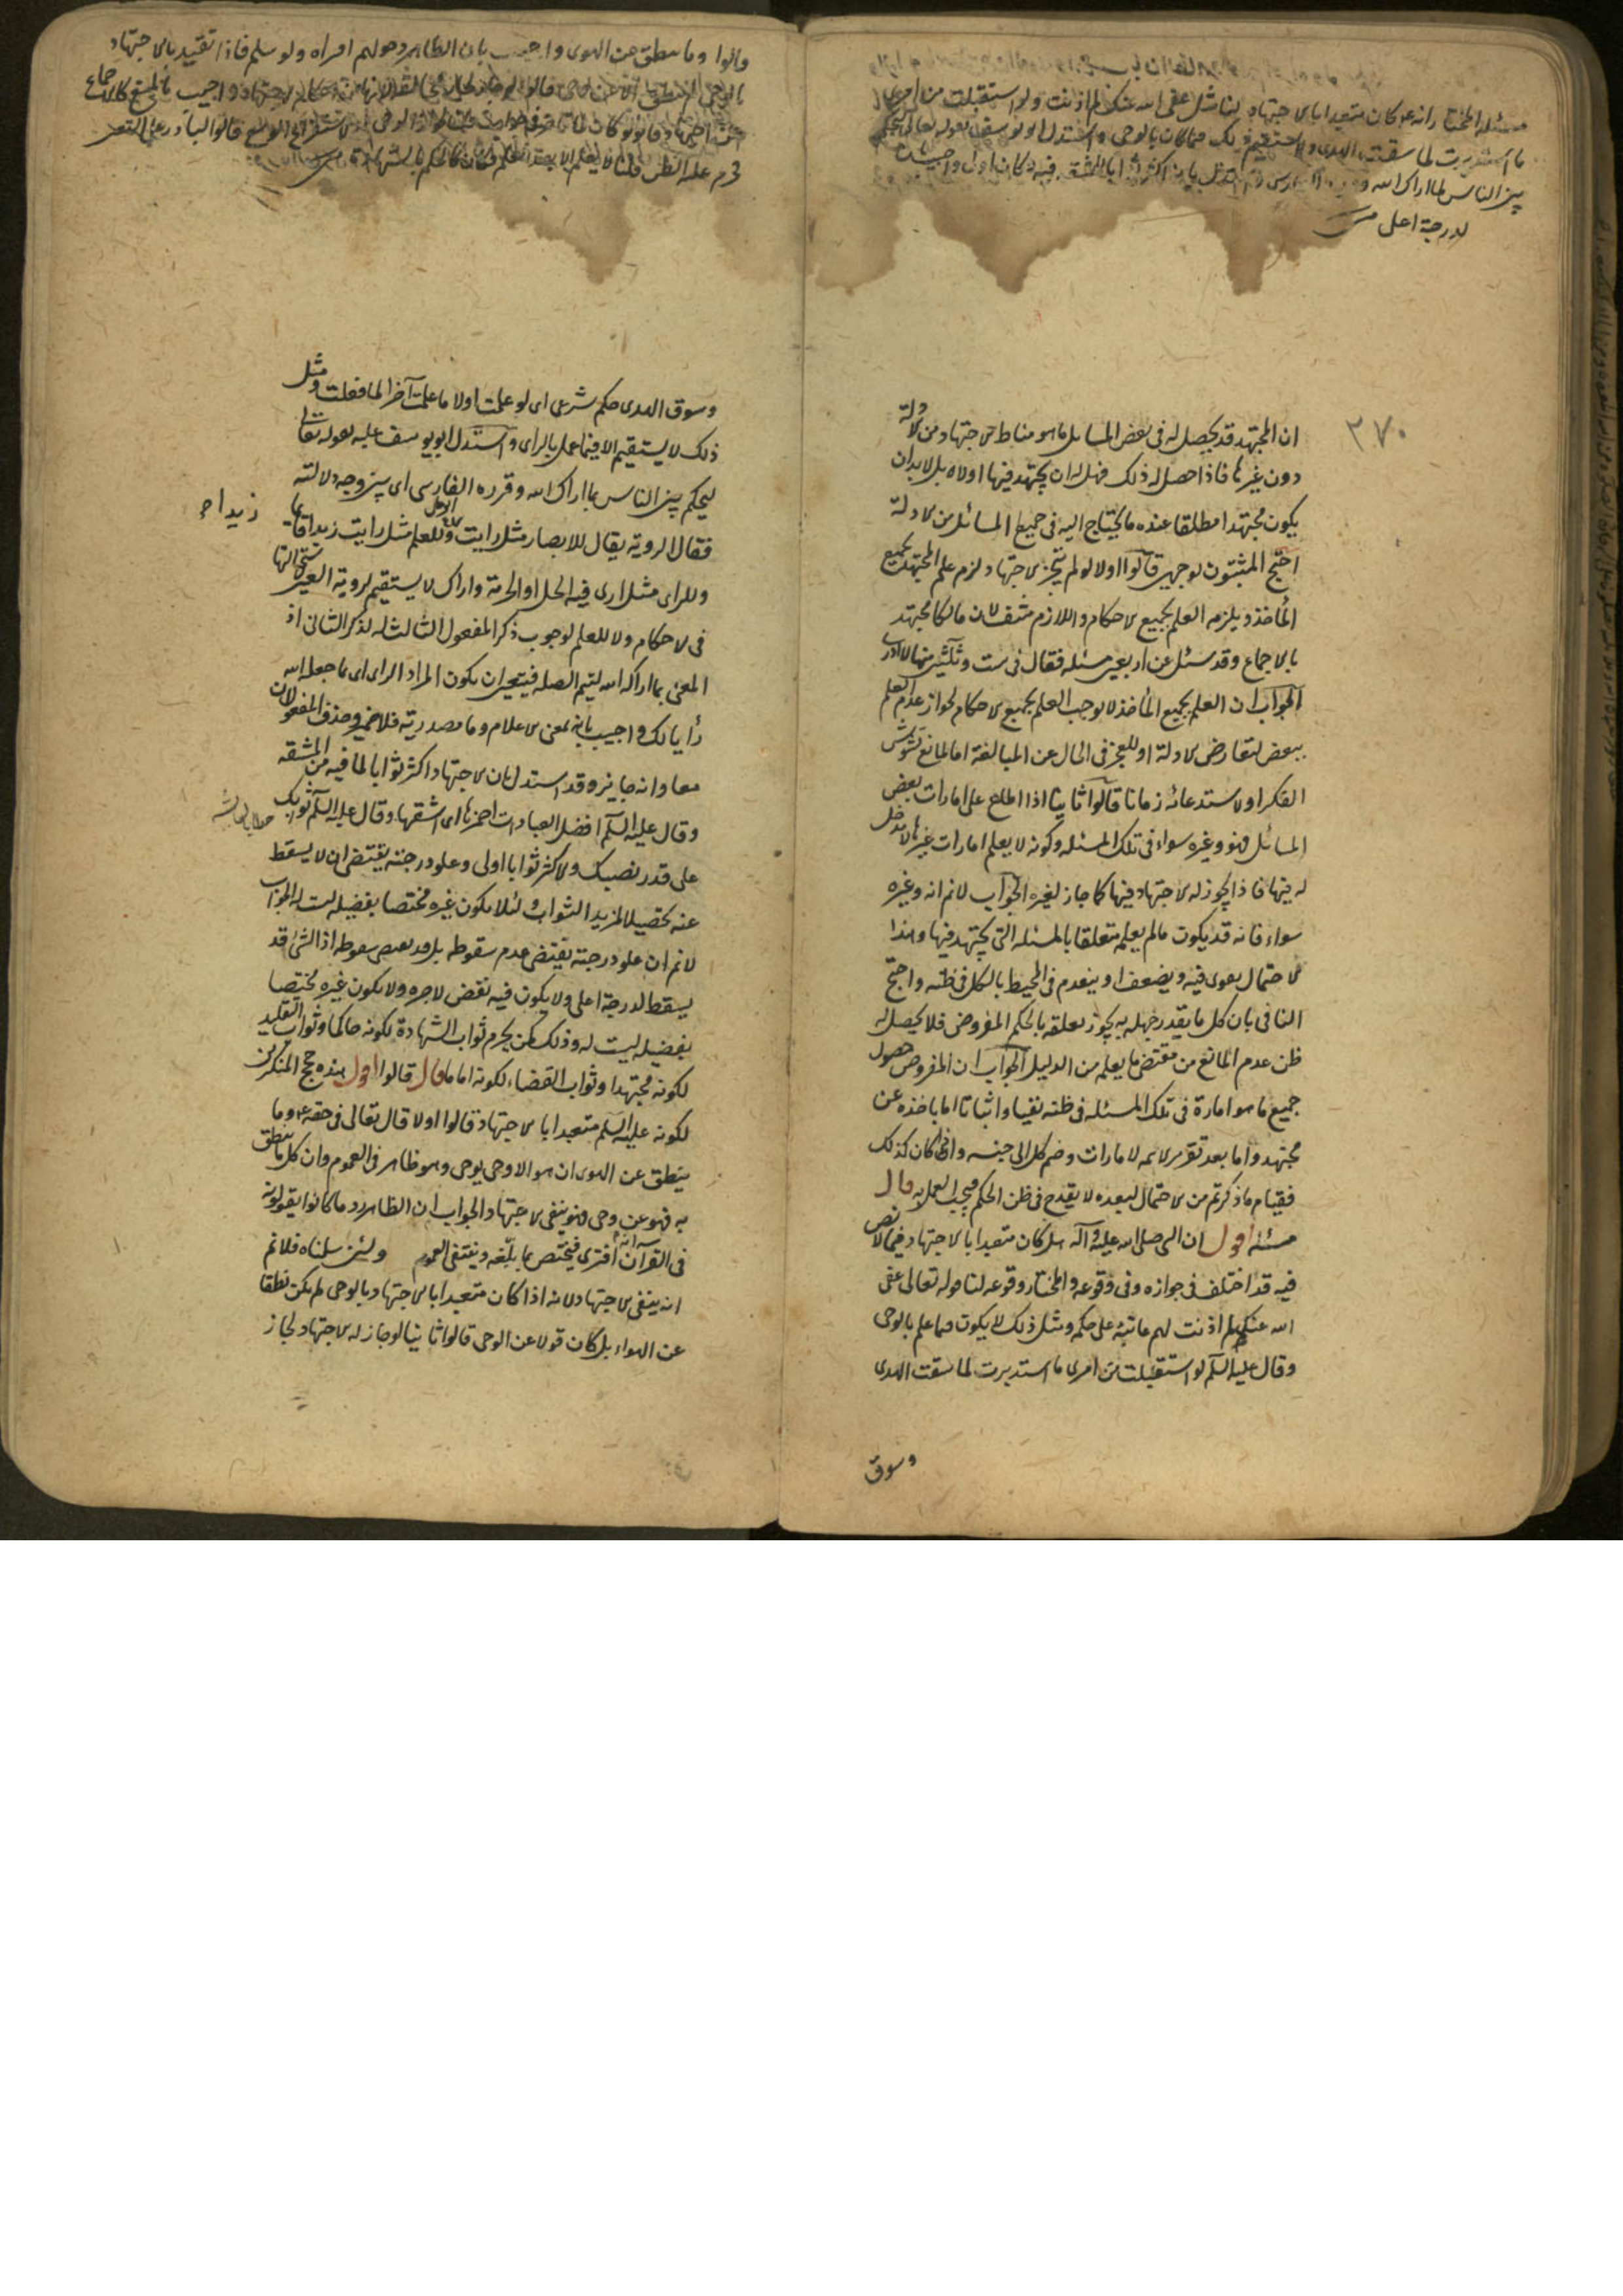 مسئله المختار انه ع م كان متعبدا بالاجتهاد لنا مثل عفى الله عنك لم اذنت ولو استقبلت من امرى
ما استدبرت لما سقت الهدى ولا يستقيم ذلك فيما كان بالوحى واستدل ابو يوسف بقوله تعالى لتحكم
بين الناس بما اراك الله
لدرجة اعلى
٣٧٠
ان المجتهد قد يحصل له فى بعض المسايل ما هو مناط الاجتهاد من الادلة
دون غيرها فاذا حصل له ذلك فهل له ان يجتهد فيها اولا بل لابد ان
يكون مجتهدا مطلقا عنده ما يحتاج اليه فى جميع المسائل من الادلة
احتج المثبتون بوجهين قالوا اولا لو لم يتجز الاجتهاد لزم علم المجتهد بجميع
المآخذ ويلزمه العلم بجميع الاحكام واللازم منتف لان مالكا مجتهد
بالاجماع وقد سئل عن اربعين مسئله فقال فى ست وثلثين منها لا ادرى
الجواب ان العلم بجميع المآخذ لا يوجب العلم بجميع الاحكام لجواز عدم العلم
ببعض لتعارض الادلة او للعجز فى الحال عن المبالغة اما لمانع يشوش
الفكر او لاستدعائه زمانا قالوا ثانيا اذا اطلع على امارات بعض
المسائل فهو وغيره سواء فى تلك المسئله وكونه لا يعلم امارات غيرها لا مدخل
له فيها فاذا يجوز له الاجتهاد فيها كما جاز لغيره الجواب لانم انه وغيره
سواء فانه قد يكون ما لم يعلمه متعلقا بالمسئله التى يجتهد فيها وهذا
الاحتمال يقوى فيه ويضعف او ينعدم فى المحيط بالكل فى ظنه واحتج
النافى بان كل ما يقدر جهله به يجوز تعلقه بالحكم المفروض فلا يحصل له
ظن عدم المانع من مقتضى ما يعلمه من الدليل الجواب ان المفروض حصول
جميع ما هو امارة فى تلك المسئله فى ظنه نفيا واثباتا اما باخذه عن
مجتهد واما بعد تقرير الائمه الامارات وضم كل الى جنسه واذا كان كذلك
فقيام ما ذكرتم من الاحتمال لبعده لا يقدح فى ظن الحكم فيجب العمل به قال
مسئله اقول ان النبى صلى الله عليه وآله هل كان متعبدا بالاجتهاد فيما لا نص
فيه قد اختلف فى جوازه وفى وقوعه والمختار وقوعه لنا قوله تعالى عفى
الله عنك لم اذنت لهم عاتبه على حكمه ومثل ذلك لا يكون فيما علم بالوحى
وقال عليه السلم لو استقبلت من امرى ما استدبرت لما سقت الهدى
وسوق
قالوا وما ينطق عن الهوى واجيب بان الظاهر رد قولهم افتراه ولو سلم فاذا تعبد بالاجتهاد
بالوحى لم ينطق الا عن وحى قالوا لو جاز لجاز مخالفته لانها من احكام الاجتهاد واجيب بالمنع كالاجماع
عن اجتهاد قالوا لو كان لما تاخر فى جواب
حرم عليه الظن قلنا لا يعلم الا بعد الحكم فكان كالحكم بالشهادة
وسوق الهدى حكم شرعى اى لو علمت اولا ما علمت آخرا لما فعلت ومثل
ذلك لا يستقيم الا فيما عمل بالراى واستدل ابو يوسف عليه بقوله تعالى
لتحكم بين الناس بما اراك الله وقرره الفارسى اى بين وجه دلالته
فقال الروية يقال للابصار مثل رايت زيدا وللعلم مثل رايت زيدا قائما
وللراى مثل ارى فيه الحل او الحرمة واراك لا يستقيم لروية العين لاستحالتها
فى الاحكام ولا للعلم لوجوب ذكر المفعول الثالث له لذكر الثانى اذ
المعنى بما اراكه الله ليتم الصله فيتعين ان يكون المراد الراى اى بما جعله الله
رأيا لك واجيب بانه بمعنى الاعلام وما مصدرية فلا ضمير وحذف المفعولان
معا وانه جايز وقد استدل بان الاجتهاد اكثر ثوابا لما فيه من المشقه
وقال عليه السلم افضل العبادات احمزها اى اشقها وقال عليه السلم ثوابك
على قدر نصبك والاكثر ثوابا اولى وعلو درجته يقتضى ان لا يسقط
عنه تحصيلا لمزيد الثواب ولئلا يكون غيره مختصا بفضيله ليست له الجواب
لانم ان علو درجته يقتضى عدم سقوطه بل قد يقتضى سقوطه اذ الشئ قد
يسقط لدرجة اعلى ولا يكون فيه نقص لاجره ولا يكون غيره مختصا
بفضيله ليست له وذلك كمن يحرم ثواب الشهادة لكونه حاكما وثواب التقليد
لكونه مجتهدا وثواب القضاء لكونه اماما قال قالوا اقول هذه حجج المنكرين
لكونه عليه السلم متعبدا بالاجتهاد قالوا اولا قال تعالى فى حقه ع م وما
ينطق عن الهوى ان هو الا وحى يوحى وهو ظاهر فى العموم وان كل ما ينطق
به فهو عن وحى وهو ينفى الاجتهاد الجواب ان الظاهر رد ما كانوا يقولونه
فى القرآن انه افترى فيختص بما بلغه وينتفى العموم ولئن سلمناه فلانم
انه ينفى الاجتهاد لانه اذا كان متعبدا بالاجتهاد بالوحى لم يكن نطقا
عن الهواء بل كان قولا عن الوحى قالوا ثانيا لو جاز له الاجتهاد لجاز